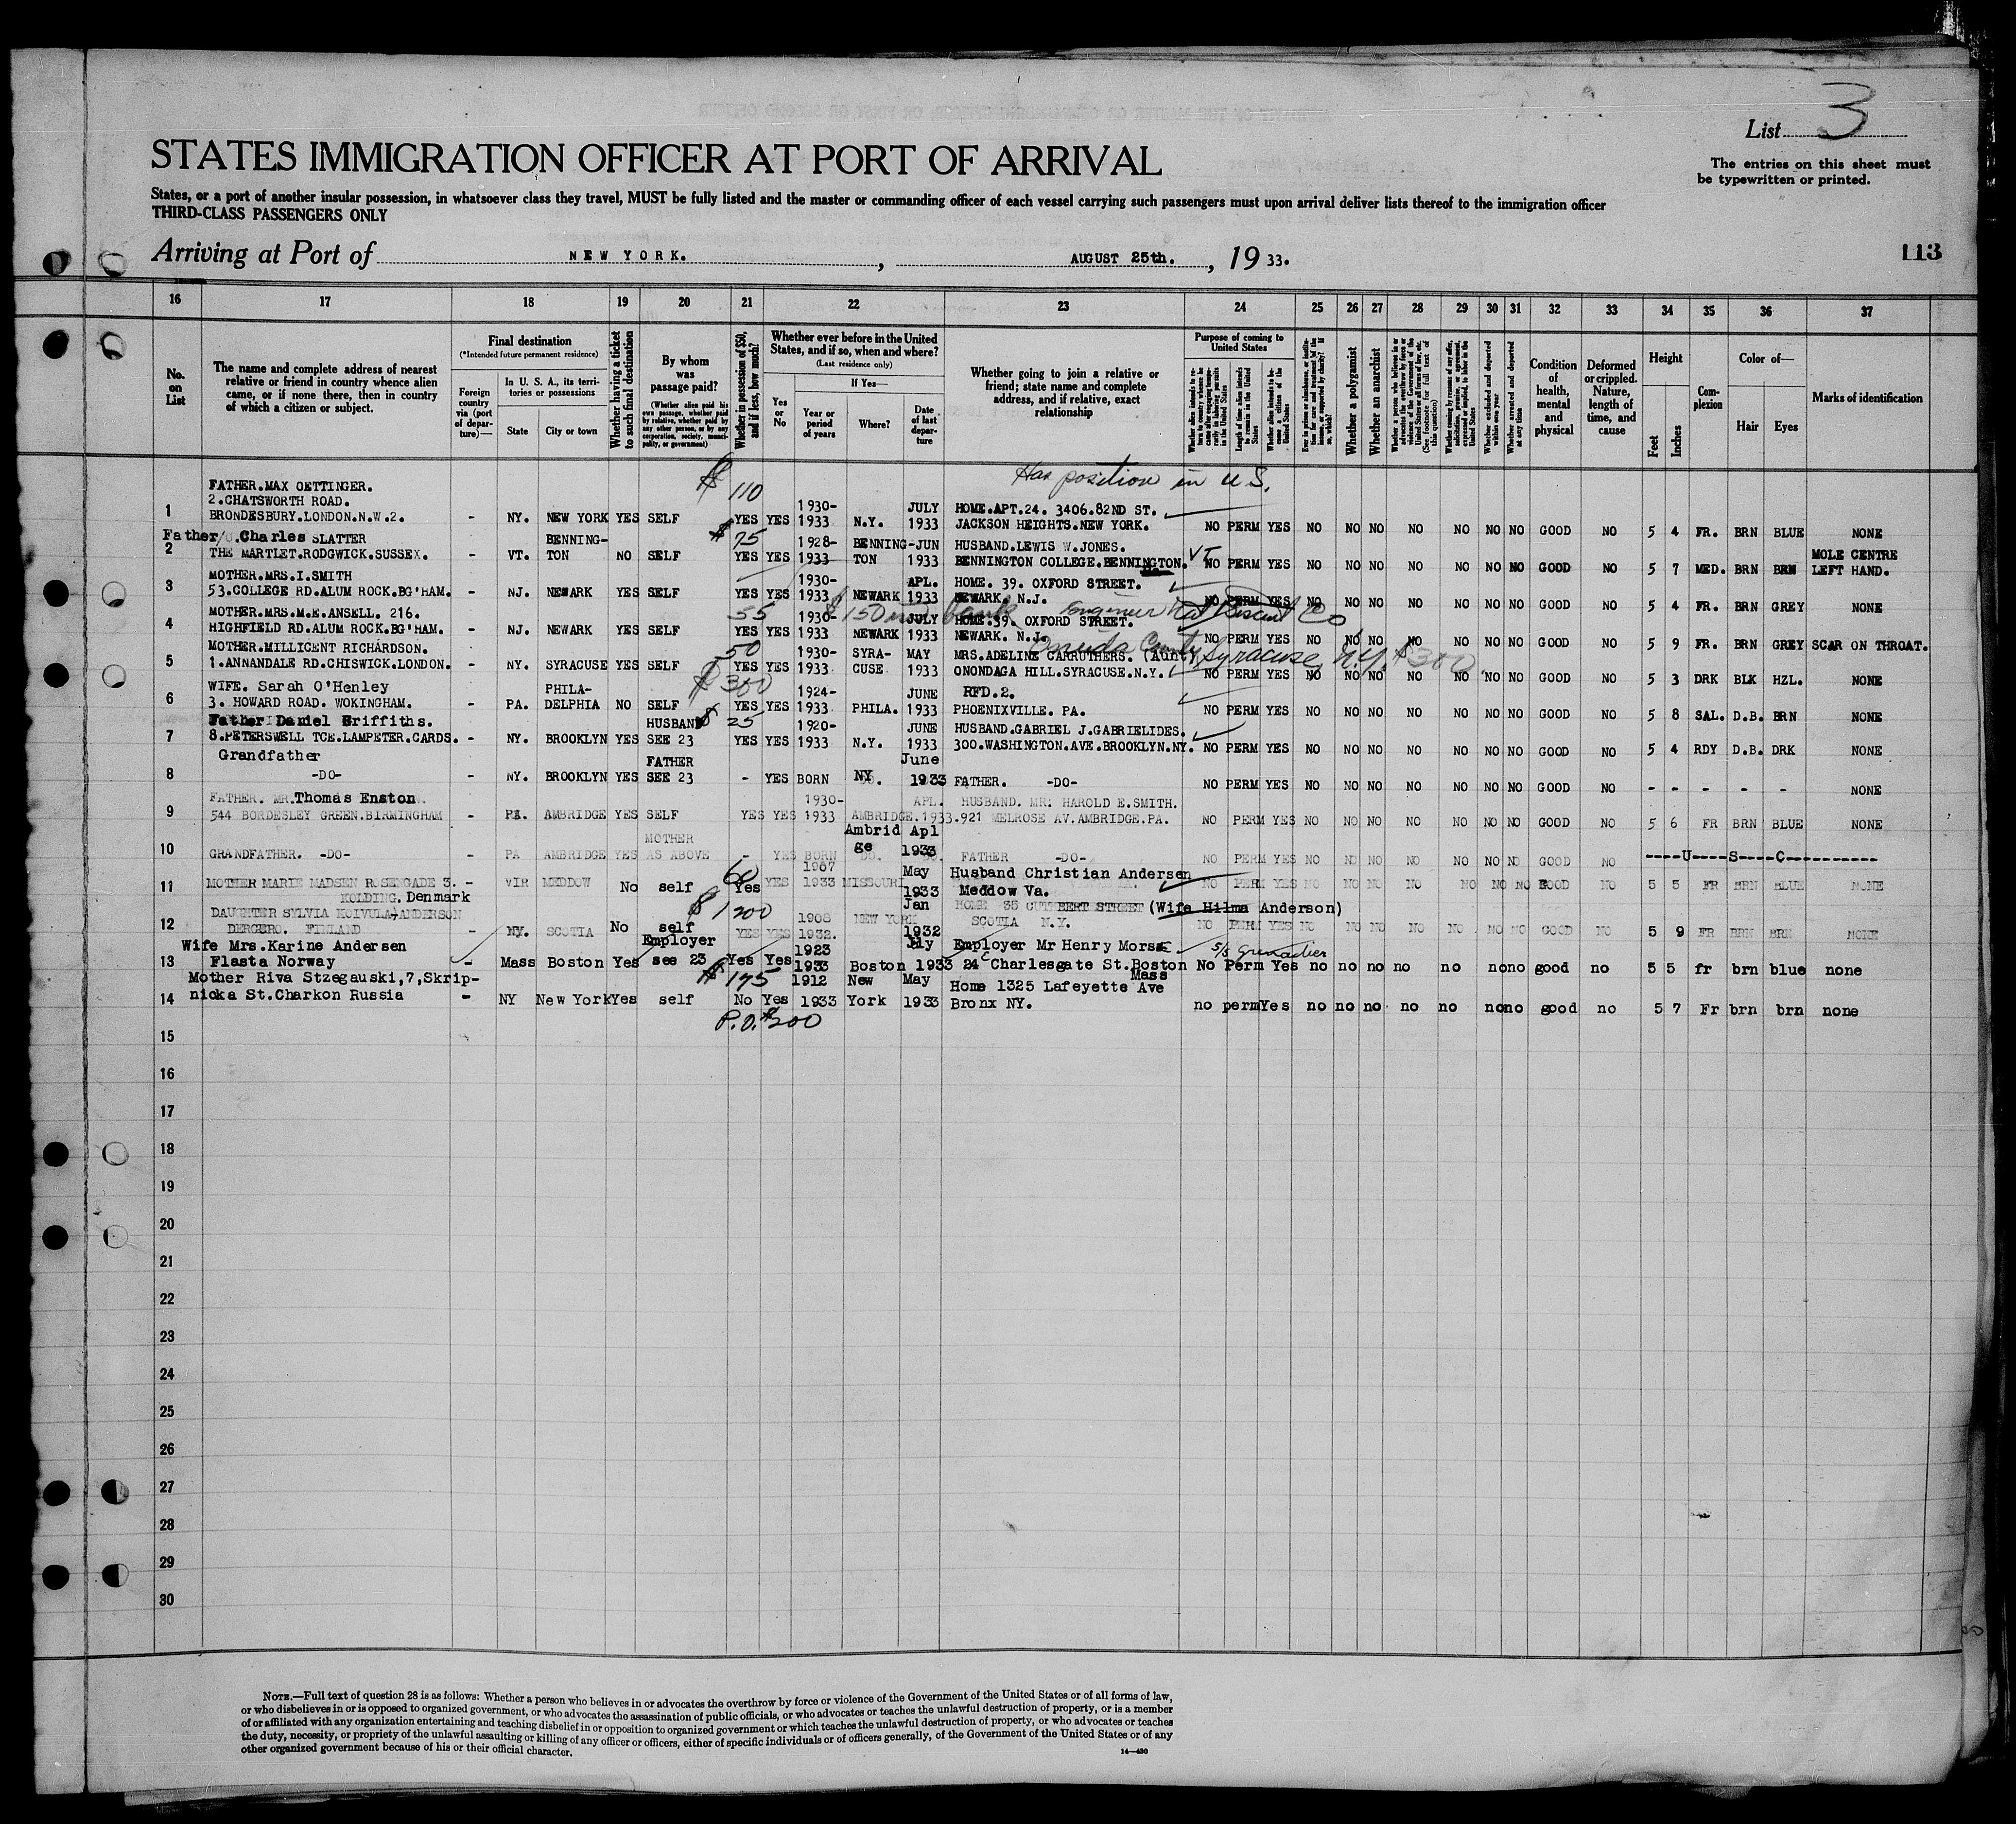 List 3
STATES IMMIGRATION OFFICER AT PORT OF ARRIVAL
The entries on this sheet must
be typewritten or printed.
States, or a port of another insular possession, in whatsoever class they travel, MUST be fully listed and the master or commanding officer of each vessel carrying such passengers must upon arrival deliver lists thereof to the immigration officer
THIRD-CLASS PASSENGERS ONLY
Arriving at Port of NEW YORK. , AUGUST 25th. , 19 33.
113
16 17 18 19 20 21 22 23 24 25 26 27 28 29 30 31 32 33 34 35 36 37
No. on List
The name and complete address of nearest relative or friend in country whence alien came, or if none there, then in country of which a citizen or subject.
Final destination
(*Intended future permanent residence)
Foreign country via (port of departure)—
In U. S. A., its territories or possessions
State City or town
Whether having a ticket to such final destination
By whom was passage paid?
(Whether alien paid his own passage, whether paid by relative, whether paid by any other person, or by any corporation, society, municipality, or government)
Whether in possession of $50, and if less, how much?
Whether ever before in the United States, and if so, when and where?
(Last residence only)
Yes or No
If Yes—
Year or period of years
Where?
Date of last departure
Whether going to join a relative or friend; state name and complete address, and if relative, exact relationship
Purpose of coming to United States
Length of time alien intends to remain in the United States
Whether alien intends to become a citizen of the United States
Whether a polygamist
Whether an anarchist
Condition of health, mental and physical
Deformed or crippled. Nature, length of time, and cause
Height
Feet Inches
Complexion
Color of—
Hair Eyes
Marks of identification
FATHER.MAX OETTINGER. $ 110 Has position in U.S.
2.CHATSWORTH ROAD. 1930- JULY HOME.APT.24. 3406.82ND ST.
1 BRONDESBURY.LONDON.N.W.2. - NY. NEW YORK YES SELF YES YES 1933 N.Y. 1933 JACKSON HEIGHTS.NEW YORK. NO PERM YES NO NO NO NO NO NO NO GOOD NO 5 4 FR. BRN BLUE NONE
Father Charles SLATTER BENNING- $ 75 1928- BENNING- JUN HUSBAND.LEWIS W.JONES. VT MOLE CENTRE
2 THE MARTLET.RODGWICK.SUSSEX. - VT. TON NO SELF YES YES 1933 TON 1933 BENNINGTON COLLEGE.BENNINGTON. NO PERM YES NO NO NO NO NO NO NO GOOD NO 5 7 MED. BRN BRN LEFT HAND.
MOTHER.MRS.I.SMITH 1930- APL. HOME. 39. OXFORD STREET.
3 53.COLLEGE RD.ALUM ROCK.BG'HAM. - NJ. NEWARK YES SELF YES YES 1933 NEWARK 1933 NEWARK. N.J. NO PERM YES NO NO NO NO NO NO NO GOOD NO 5 4 FR. BRN GREY NONE
MOTHER.MRS.M.E.ANSELL. 216. 55 1930- $150 in bank JULY HOME.39. OXFORD STREET. Engineer Co
4 HIGHFIELD RD.ALUM ROCK.BG'HAM. - NJ. NEWARK YES SELF YES YES 1933 NEWARK 1933 NEWARK. N.J. NO PERM YES NO NO NO NO NO NO NO GOOD NO 5 9 FR. BRN GREY SCAR ON THROAT.
MOTHER.MILLICENT RICHARDSON. 50 1930- SYRA- MAY MRS.ADELINE CARRUTHERS. (Aunt) Oneida County Syracuse N.Y. $300
5 1.ANNANDALE RD.CHISWICK.LONDON. - NY. SYRACUSE YES SELF YES YES 1933 CUSE 1933 ONONDAGA HILL.SYRACUSE.N.Y. NO PERM YES NO NO NO NO NO NO NO GOOD NO 5 3 DRK BLK HZL. NONE
WIFE. Sarah O'Henley PHILA- $300 1924- JUNE RFD.2.
6 3. HOWARD ROAD. WOKINGHAM. - PA. DELPHIA NO SELF YES YES 1933 PHILA. 1933 PHOENIXVILLE. PA. NO PERM YES NO NO NO NO NO NO NO GOOD NO 5 8 SAL. D.B. BRN NONE
Father Daniel Griffiths. HUSBAND $ 25 1920- JUNE HUSBAND.GABRIEL J.GABRIELIDES.
7 8.PETERSWELL TCE.LAMPETER.CARDS. - NY. BROOKLYN YES SEE 23 YES YES 1933 N.Y. 1933 300.WASHINGTON.AVE.BROOKLYN.NY. NO PERM YES NO NO NO NO NO NO NO GOOD NO 5 4 RDY D.B. DRK NONE
Grandfather FATHER June
8 -DO- - NY. BROOKLYN YES SEE 23 - YES BORN NY. 1933 FATHER. -DO- NO PERM YES NO NO NO NO NO NO NO GOOD NO - - - - - NONE
FATHER. MR.Thomas Enston 1930- APL. HUSBAND. MR. HAROLD E.SMITH.
9 544 BORDESLEY GREEN.BIRMINGHAM - PA. AMBRIDGE YES SELF YES YES 1933 AMBRIDGE.1933.921 MELROSE AV.AMBRIDGE.PA. NO PERM YES NO NO NO NO NO NO NO GOOD NO 5 6 FR BRN BLUE NONE
MOTHER Ambrid Apl
10 GRANDFATHER. -DO- - PA AMBRIDGE YES AS ABOVE - YES BORN ge 1933 FATHER -DO- NO PERM YES NO NO NO NO NO NO NO GOOD NO ----U----S----C-----------
60 1907 May Husband Christian Andersen
11 MOTHER MARIE MADSEN ROSENGADE 3. - VIR MEDDOW No self Yes YES 1933 MISSOURI 1933 Meddow Va. NO PERM YES NO NO NO NO NO NO NO GOOD NO 5 5 FR BRN BLUE NONE
KOLDING. Denmark
DAUGHTER SYLVIA KOIVULA, ANDERSON $1200 1908 NEW YORK Jan HOME 35 CUTHBERT STREET (Wife Hilma Anderson)
12 DERGERO. FINLAND - NY. SCOTIA No self YES YES 1932. 1932 SCOTIA N.Y. NO PERM YES NO NO NO NO NO NO NO GOOD NO 5 9 FR BRN BRN NONE
Wife Mrs.Karine Andersen Employer 1923 Jly Employer Mr Henry Morse S/S Grenadier
13 Flasta Norway - Mass Boston Yes see 23 Yes Yes 1933 Boston 1933 24 Charlesgate St.Boston Mass No Perm Yes no no no no no no no good no 5 5 fr brn blue none
Mother Riva Stzegauski,7,Skrip- $175 1912 New May Home 1325 Lafeyette Ave
14 nicka St.Charkon Russia - NY New York Yes self No Yes 1933 York 1933 Bronx NY. no perm Yes no no no no no no no good no 5 7 Fr brn brn none
P.O. $200
15
16
17
18
19
20
21
22
23
24
25
26
27
28
29
30
NOTE.—Full text of question 28 is as follows: Whether a person who believes in or advocates the overthrow by force or violence of the Government of the United States or of all forms of law,
or who disbelieves in or is opposed to organized government, or who advocates the assassination of public officials, or who advocates or teaches the unlawful destruction of property, or is a member
of or affiliated with any organization entertaining and teaching disbelief in or opposition to organized government or which teaches the unlawful destruction of property, or who advocates or teaches
the duty, necessity, or propriety of the unlawful assaulting or killing of any officer or officers, either of specific individuals or of officers generally, of the Government of the United States or of any
other organized government because of his or their official character.
14—430